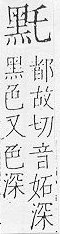 都故切音妬深
黑色又色深